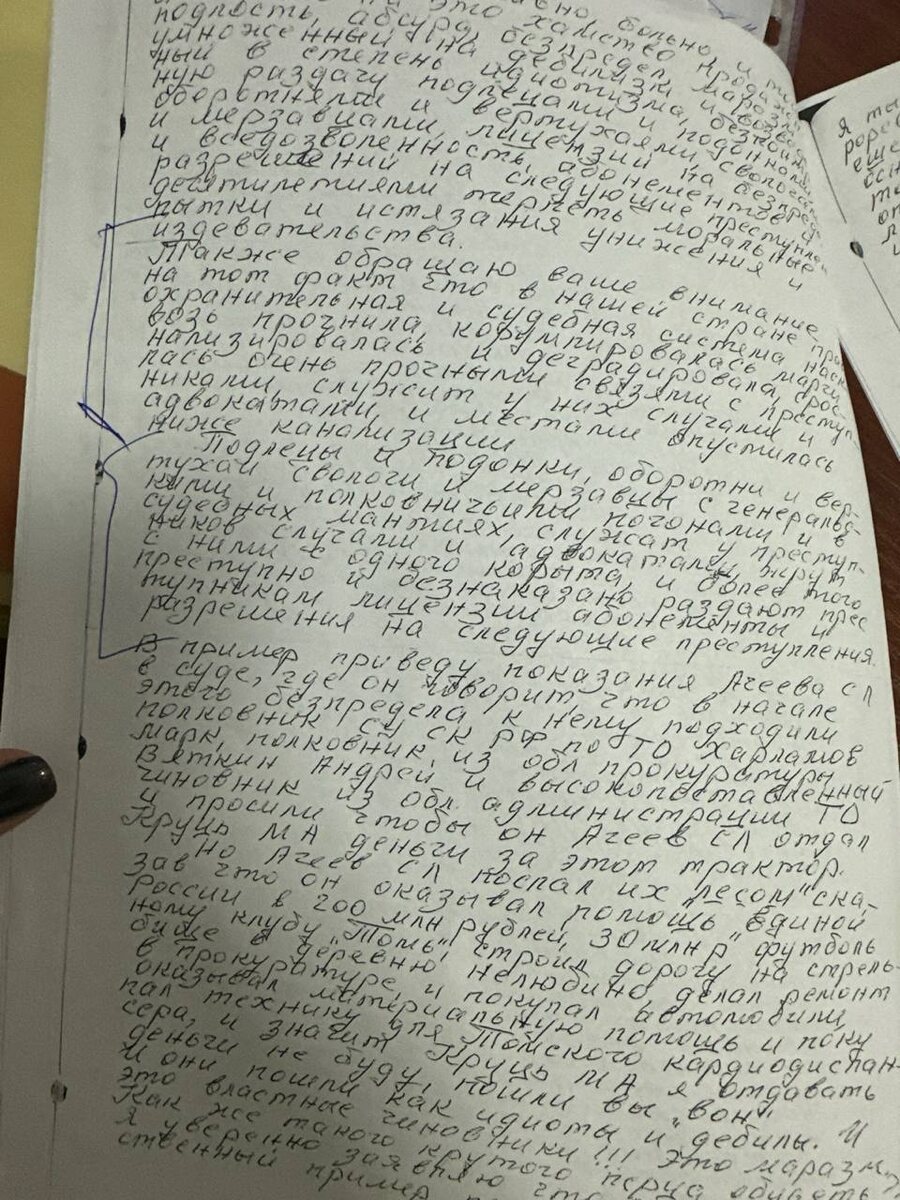 но больно и
это хамство
подлость, абсурд, беспредел,
умноженный на дебилизм, маразм
ный в степень идиотизма, и
ную раздачу подлецами и
оборотнями и вертухаями,
и мерзавцами, лицензий на
и вседозволенность, абонементов
разрешений на следующие преступле
десятилетиями терпеть моральные
пытки и истязания унижения и
издевательства.
Также обращаю ваше внимание
на тот факт что в нашей стране пра
охранительная и судебная система наск
возь прочнила, корумпировалась марги
нализировалась и деградировала, срос
лась очень прочными связями с преступ-
никами, служит у них случами и
адвокатами, и местами опустилась
ниже канализации
Подлецы и подонки, оборотни и вер-
тухаи сволочи и мерзавцы с генеральс-
кими и полковничьими погонами и в
судебных мантиях, служат у преступ-
ников случами и адвокатами, жрут
с ними с одного корыта, и более того
преступно и безнаказано раздают прес
тупникам лицензии абонементы и
разрешения на следующие преступления.
В пример приведу показания Агеева СЛ
в суде, где он говорит, что в начале
этого безпредела, к нему подходили
полковник СУ СК РФ по ТО Харламов
Марк, полковник, из обл прокуратуры
Вяткин Андрей и высокопоставленный
чиновник из обл. администрации ТО
и просили чтобы он Агеев СЛ отдал
Круць МА деньги за этом трактор.
Но Агеев СЛ послал их "лесом" ска-
зав что он оказывал помощь "Единой
России в 200 млн рублей, 30 млн р" футболь
ному клубу "Томь", строил дорогу на стрель-
бище в деревню Нелюбино, делал ремонт
в прокуратуре и покупал автомобили,
оказывал материальную помощь и поку
пал технику для Томского кардиодиспан-
сера, и значит Круць МА я отдавать
деньги не буду, пошли вы "вон"
И они пошли как идиоты и дебилы. И
это властные чиновники!!! Это маразм,
Как же такого крутого перца обидеть
Я уверенно заявляю что
ственный пример
Я